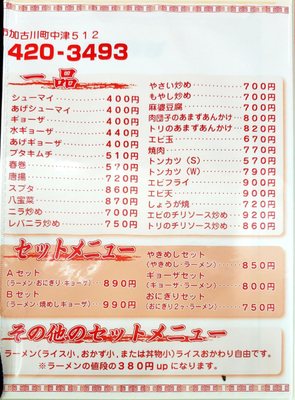 加古川町中津512
420-3493
一品
シューマイ 400円
あげシューマイ 400円
ギョーザ 400円
水ギョーザ 440円
あげギョーザ 400円
ブタキムチ 510円
春巻 570円
唐揚 720円
スブタ 860円
八宝菜 870円
ニラ炒め 750円
レバニラ炒め 750円
やさい炒め 700円
もやし炒め 700円
麻婆豆腐 700円
肉団子のあまずあんかけ 800円
トリのあまずあんかけ 820円
エビ玉 670円
焼肉 770円
トンカツ(S) 570円
トンカツ(W) 790円
エビフライ 900円
エビ天 900円
しょうが焼 720円
エビのチリソース炒め 920円
トリのチリソース炒め 860円
セットメニュー
Aセット
(ラーメン・おにぎり・キョーザ) 890円
Bセット
(ラーメン・焼めし・キョーザ) 990円
やきめしセット
(やきめし・ラーメン) 850円
キョーザセット
(キョーザ・ラーメン) 800円
おにぎりセット
(おにぎり2ヶ・ラーメン) 750円
その他のセットメニュー
ラーメン(ライス小、おかず小、または丼物小)ライスおかわり自由です。
※ラーメンの値段の380円upになります。